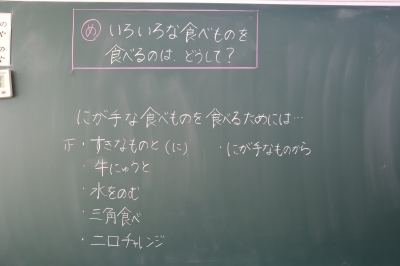 め いろいろな食べものを
食べるのは、どうして？
にが手な食べものを食べるためには…
正・すきなものと（に）
・にが手なものから
・牛にゅうと
・水をのむ
・三角食べ
・二口チャレンジ